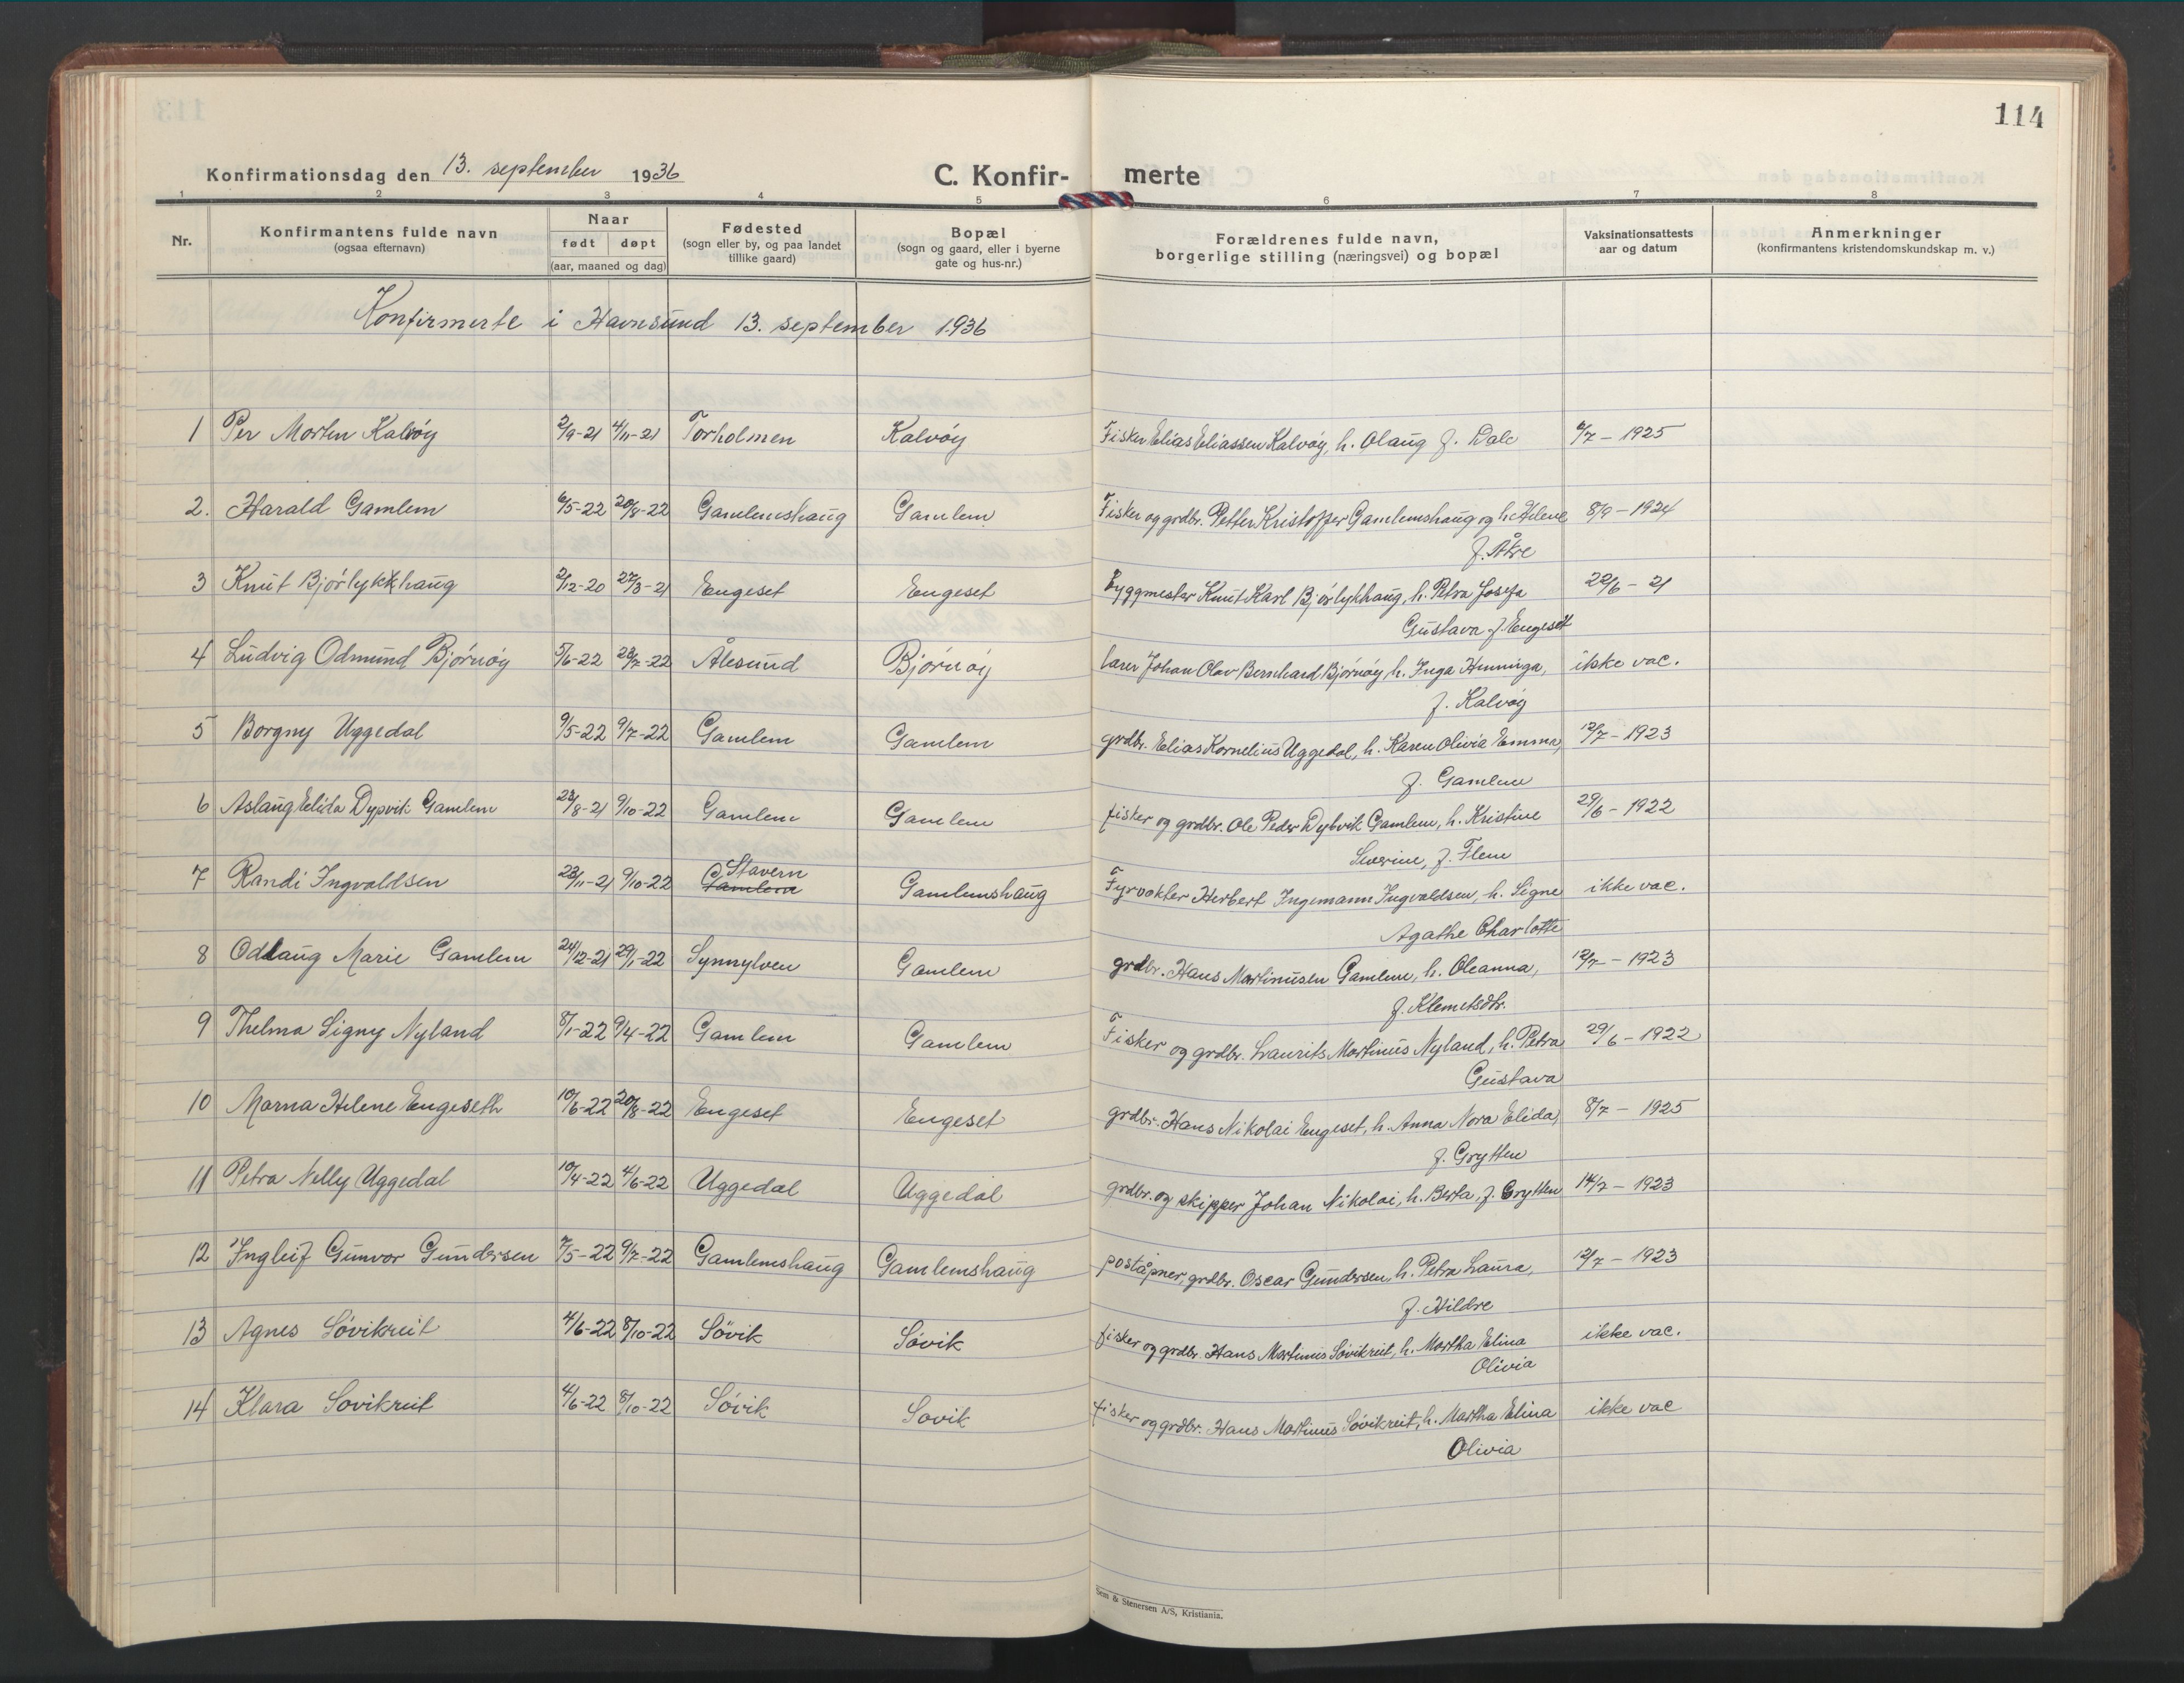 114
Konfirmationsdag den 13. september 1936
C. Konfir- merte
1 2 3 4 5 6 7 8
Nr.
Konfirmantens fulde navn
(ogsaa efternavn)
Naar
født døpt
(aar, maaned og dag)
Fødested
(sogn eller by, og paa landet
tillike gaard)
Bopæl
(sogn og gaard, eller i byerne
gate og hus-nr.)
Forældrenes fulde navn,
borgerlige stilling (næringsvei) og bopæl
Vaksinationsattests
aar og datum
Anmerkninger
(konfirmantens kristendomskundskap m. v.)
Konfirmerte i Havnsund 13. september 1936
1 Per Morten Kalvöy 2/9-21 4/11-21 Torholmen Kalvöy Fisker Elias Eliassen Kalvöy, h. Olaug f. Dale /7 - 1925
2. Harald Gamlem 6/5-22 20/8-22 Gamlemshaug Gamlem Fisker og grdbr. Petter Kristoffer Gamlemshaug og h. Helene 8/9 - 1924
f. Åkre
3 Knut Bjørlykkhaug 2/12-20 27/3-21 Engeset Engeset Byggmester Knut Karl Bjørlykhaug, h. Petra Josefa 22/6 - 21
Gustava f. Engeset
4 Ludvig Odmund Bjørnøy 5/6-22 23/7-22 Ålesund Bjørnøy lærer Johan Olav Bernhard Bjørnøy, h. Inga Henninga, ikke vac.
f. Kalvøy
5 Borgny Uggedal 9/5-22 9/7-22 Gamlem Gamlem grdbr. Elias Kornelius Uggedal, h. Karen Olivia Emma, 12/7 - 1923
f. Gamlem
6 Aslaug Elida Dypvik Gamlem 23/8-21 9/10-22 Gamlem Gamlem fisker og grdbr. Ole Peder Dybvik Gamlem, h. Kristine 29/6 - 1922
Severine, f. Flem
7 Randi Ingvaldsen 23/11-21 9/10-22 Stavern Gamlem Gamlemshaug Fyrvokter Herbert Ingemann Ingvaldsen, h. Signe ikke vac.
Agathe Charlotte
8 Odlaug Marie Gamlem 24/12-21 29/1-22 Synnylven Gamlem grdbr. Hans Martinusen Gamlem, h. Oleanna, 12/7 - 1923
f. Klemetsdtr.
9 Thelma Signy Nyland 8/1-22 9/4-22 Gamlem Gamlem Fisker og grdbr. Laurits Martinus Nyland, h. Petra 29/6 - 1922
Gustava
10 Marna Helene Engeseth 10/6-22 20/8-22 Engeset Engeset grdbr. Hans Nikolai Engeset, h. Anna Nora Elida, 8/7 - 1925
f. Grytten
11 Petra Nelly Uggedal 10/4-22 4/6-22 Uggedal Uggedal grdbr. og skipper Johan Nikolai, h. Berta, f. Grytten 14/7 - 1923
12 Ingleif Gunvor Gundersen 7/5-22 9/7-22 Gamlemshaug Gamlemshaug poståpner, grdbr. Oscar Gundersen, h. Petra Laura, 12/7 - 1923
f. Hildre
13 Agnes Søvikreit 4/6-22 8/10-22 Søvik Søvik fisker og grdbr. Hans Martinus Søvikreit, h. Martha Elina ikke vac.
Olivia
14 Klara Sovikreit 4/6-22 8/10-22 Søvik Sovik fisker og grdbr. Hans Martinus Søvikreit, h. Martha Elina ikke vac
Olivia
Sem & Stenersen A/S, Kristiania.